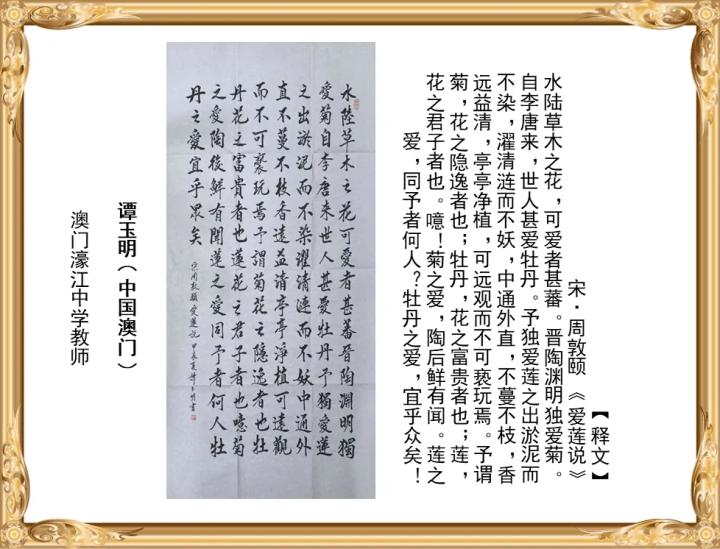 【释文】
宋·周敦颐《爱莲说》
水陆草木之花，可爱者甚蕃。晋陶渊明独爱菊。
自李唐来，世人甚爱牡丹。予独爱莲之出淤泥而
不染，濯清涟而不妖，中通外直，不蔓不枝，香
远益清，亭亭净植，可远观而不可亵玩焉。予谓
菊，花之隐逸者也；牡丹，花之富贵者也；莲，
花之君子者也。噫！菊之爱，陶后鲜有闻。莲之
爱，同予者何人？牡丹之爱，宜乎众矣！
水陸草木之花可愛者甚蕃晉陶淵明獨
愛菊自李唐来世人甚愛牡丹予獨愛蓮
之出淤泥而不染濯清漣而不妖中通外
直不蔓不枝香遠益清亭亭淨植可遠觀
而不可褻玩焉予謂菊花之隱逸者也牡
丹花之富貴者也蓮花之君子者也噫菊
之愛陶後鮮有聞蓮之愛同予者何人牡
丹之愛宜乎眾矣
宋周敦頤愛蓮說 甲辰夏譚玉明書
谭玉明（中国澳门）
澳门濠江中学教师